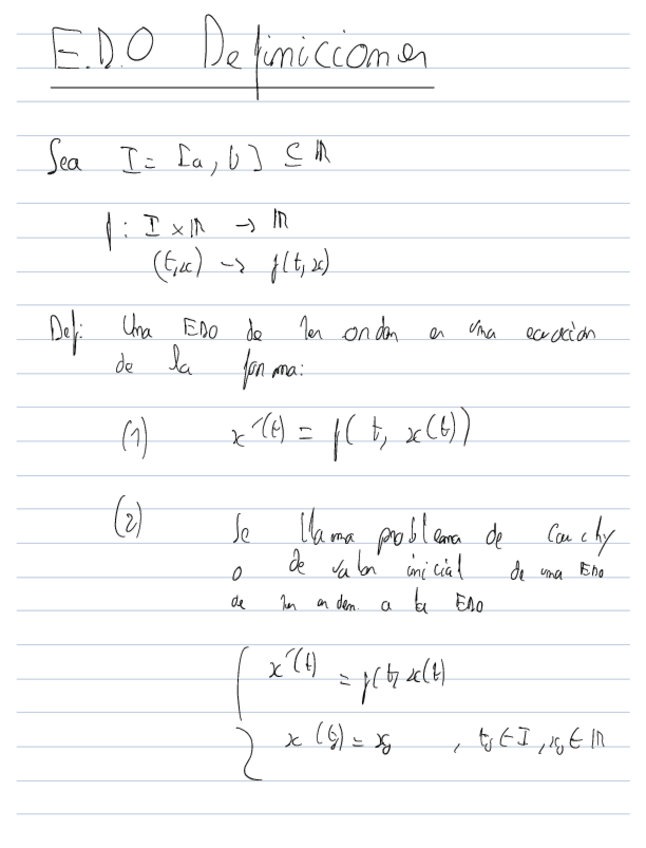 E.D.O Definiciones
Sea I = [a, b] ⊆ ℝ
f : I × ℝ → ℝ
(t,x) → f(t, x)
Def: Una EDO de 1er orden es una ecuación
de la forma:
(1) x'(t) = f( t, x(t))
(2) Se llama problema de Cauchy
o de valor inicial de una EDO
de 1er orden a la EDO
x'(t) = f(t, x(t)
x (t₀) = x₀ , t₀ ∈ I, x₀ ∈ ℝ